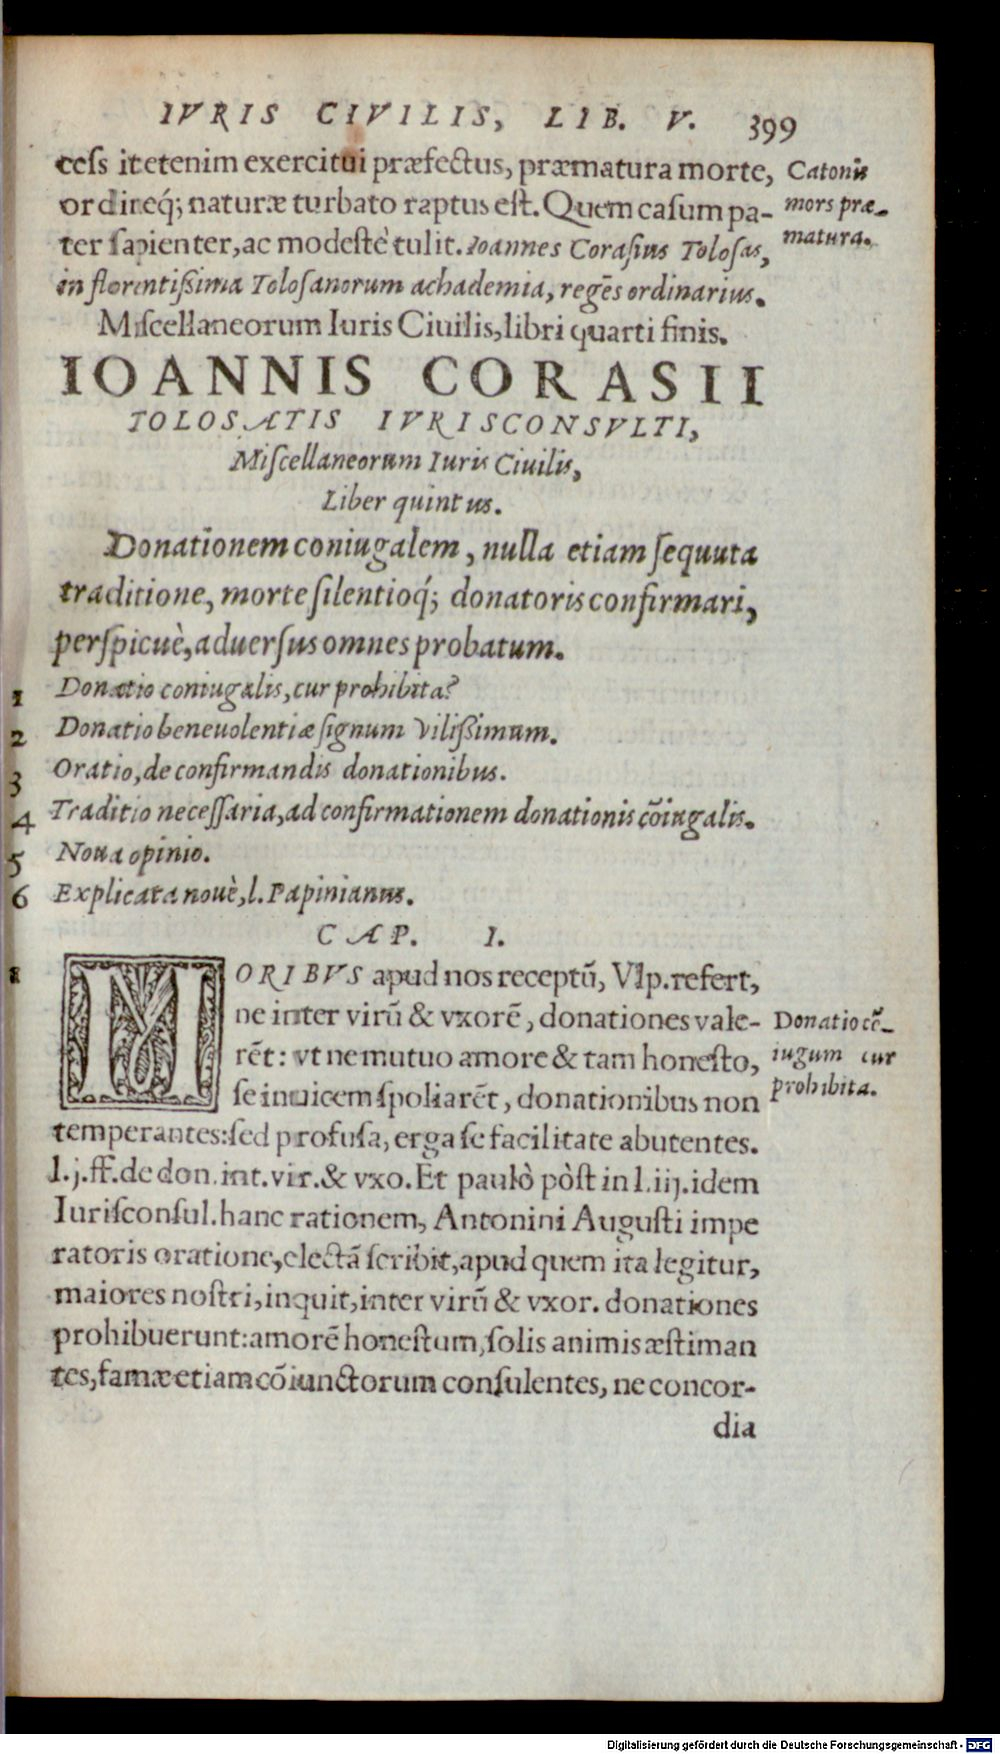 IVRIS CIVILIS, LIB. V. 399
cess itetenim exercitui præfectus, præmatura morte,
ordineq́; naturæ turbato raptus est. Quem casum pa-
ter sapienter, ac modestè tulit. Ioannes Corasius Tolosas,
in florentißima Tolosanorum achademia, regēs ordinarius.
Catonis
mors præ-
matura.
Miscellaneorum Iuris Ciuilis, libri quarti finis.
IOANNIS CORASII
TOLOSATIS IVRISCONSVLTI,
Miſcellaneorum Iuris Ciuilis,
Liber quintus.
Donationem coniugalem, nulla etiam ſequuta
traditione, morte ſilentioq́; donatoris confirmari,
perſpicuè, aduerſus omnes probatum.
1 Donatio coniugalis, cur prohibita?
2 Donatio beneuolentiæ ſignum vilißimum.
3 Oratio, de confirmandis donationibus.
4 Traditio neceſſaria, ad confirmationem donationis cōiugalis.
5 Noua opinio.
6 Explicata nouè, l. Papinianus.
CAP. I.
1 MORIBVS apud nos receptū, Vlp. refert,
ne inter virū & vxorē, donationes vale-
rēt: vt ne mutuo amore & tam honeſto,
ſe inuicem ſpoliarēt, donationibus non
temperantes: ſed profuſa, erga ſe facilitate abutentes.
l. j. ff. de don. int. vir. & vxo. Et paulò pòſt in l. iij. idem
Iuriſconſul. hanc rationem, Antonini Auguſti impe
ratoris oratione, electā ſcribit, apud quem ita legitur,
maiores noſtri, inquit, inter virū & vxor. donationes
prohibuerunt: amorē honeſtum, ſolis animis æſtiman
tes, famæ etiam cōiunctorum conſulentes, ne concor-
dia
Donatio cō-
iugum cur
prohibita.
Digitalisierung gefördert durch die Deutsche Forschungsgemeinschaft - DFG